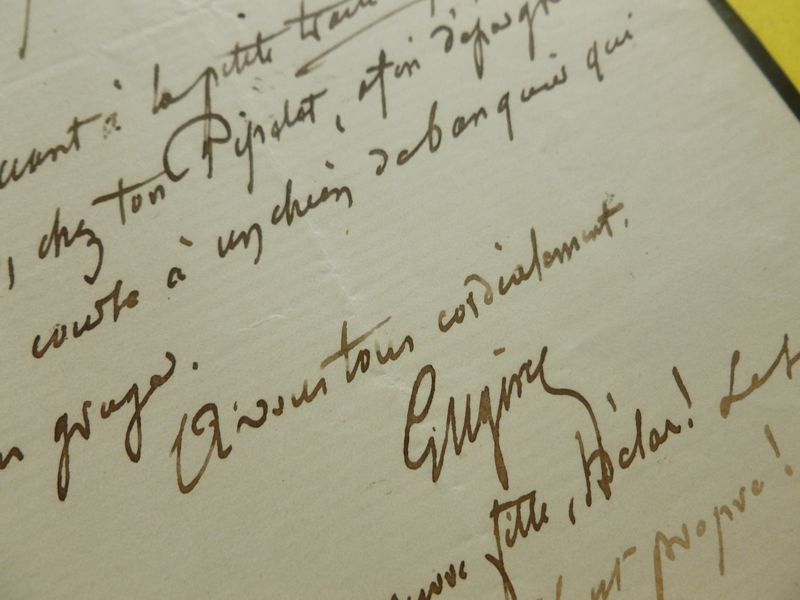 à la petite
, chez ton Pipelet, afin d'épargn
courte à un chien de banquier qui
gruger.
A vous tous cordialement.
Eugène
fille, hélas! Le t
propre!